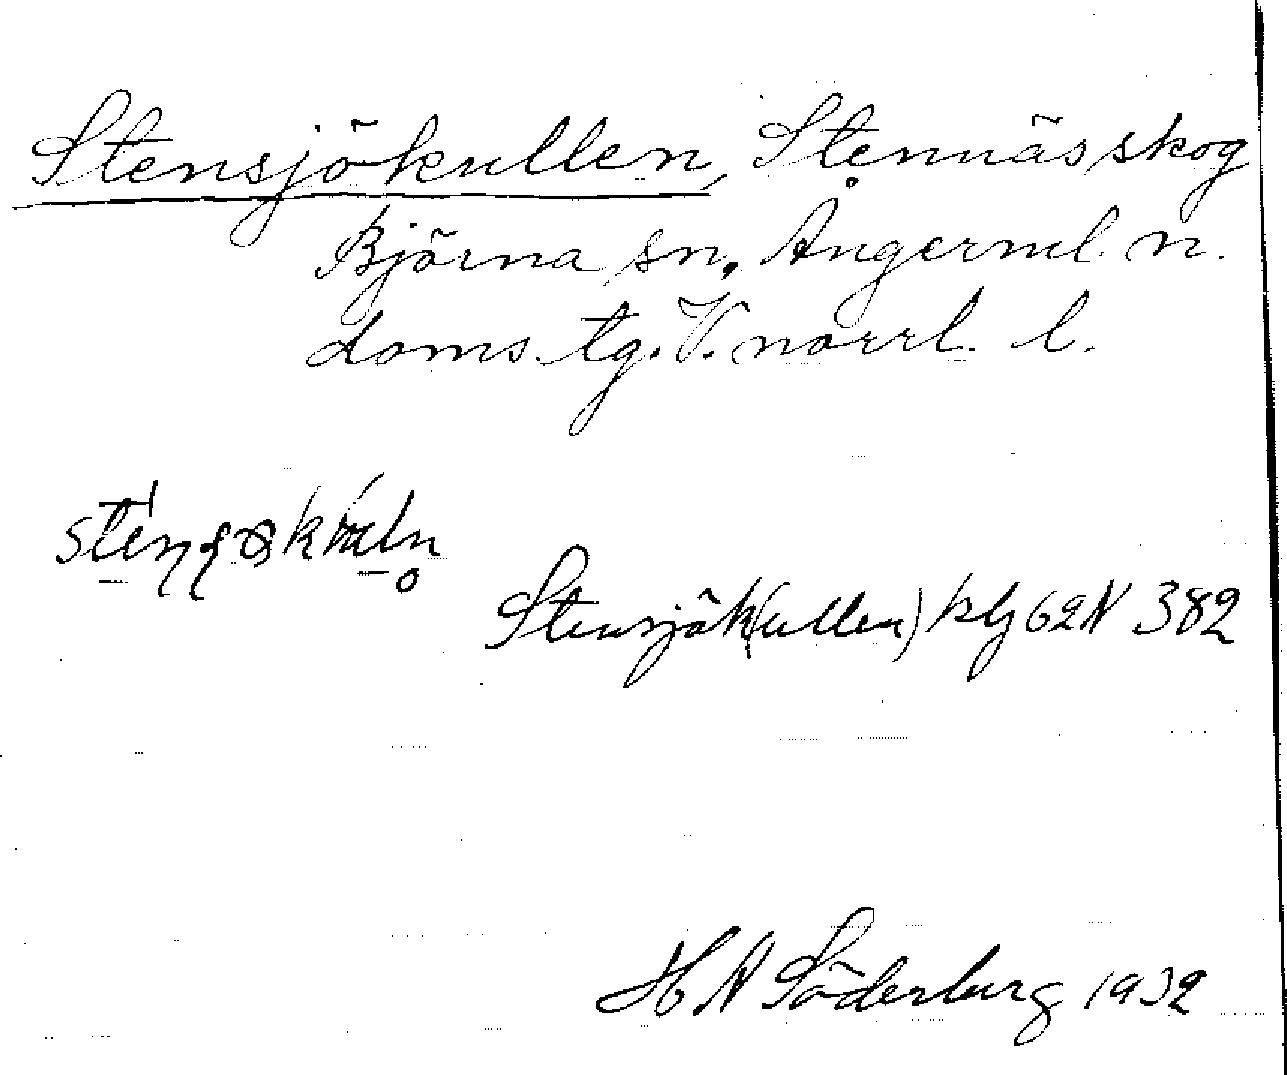 Stensjökullen, Stennäs skog
Björna sn, Ångerml. n.
doms. tg. V. norrl. l.
Stensjök(ullen) klg 62N 382
H N Söderberg 1932